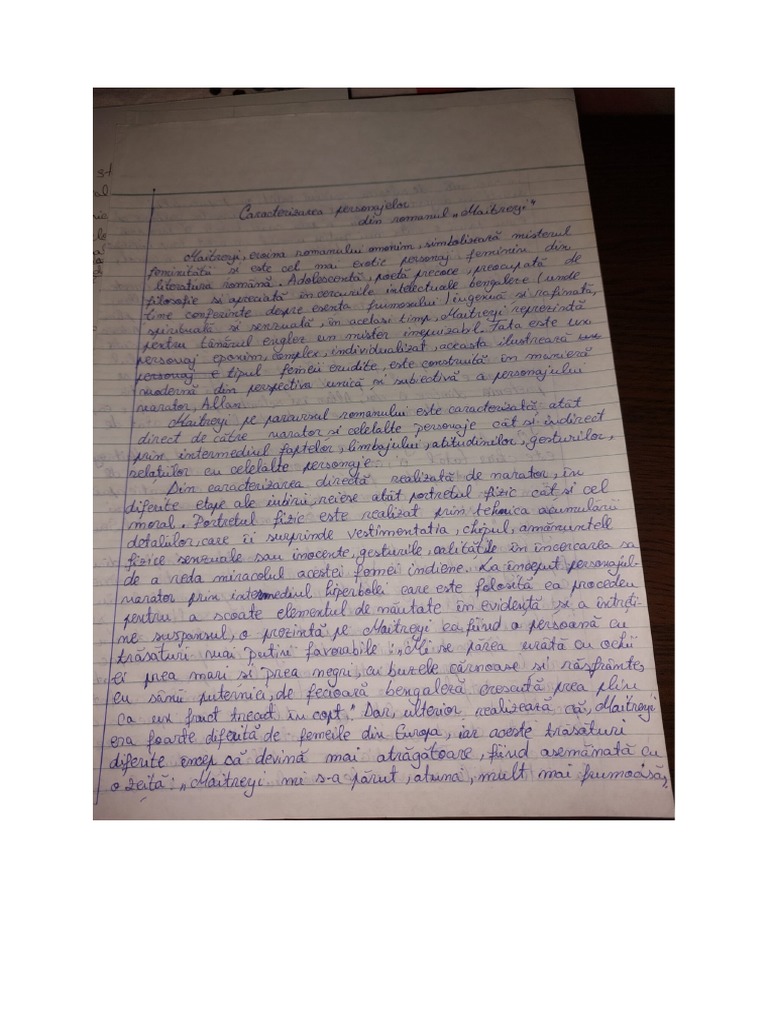 Caracterizarea personajelor
din romanul „Maitreyi"
Maitreyi, eroina romanului omonim, simbolizează misterul
feminității și este cel mai exotic personaj feminin din
literatura română. Adolescentă, poetă precoce, preocupată de
filosofie si apreciată în cercurile intelectuale bengaleze (unde
tine conferinte despre esenta frumosului) ingenuă si rafinată,
spirituală si senzuală, în acelasi timp, Maitreyi reprezintă
pentru tânărul englez un mister inepuizabil. Fata este un
personaj eponim, complex, individualizat, aceasta ilustrează
personaj e tipul femeii erudite, este construită în manieră
modernă din perspectiva unică și subiectivă a personajului
narator, Allan.
Maitreyi pe parcursul romanului este caracterizată atât
direct de către narator si celelalte personaje cât si indirect
prin intermediul faptelor, limbajului, atitudinilor, gesturilor,
relatiilor cu celelalte personaje.
Din caracterizarea directă realizată de narator, în
diferite etape ale iubirii, reiese atât portretul fizic cât si cel
moral. Portretul fizic este realizat prin tehnica acumulării
detaliilor, care îi surprinde vestimentatia, chipul, amănuntele
fizice senzuale sau inocente, gesturile, calitătile în încercarea sa
de a reda miracolul acestei femei indiene. La început personajul-
narator prin intermediul hiperbolei care este folosită ca procedeu
pentru a scoate elementul de năutate în evidență si a întreți-
ne suspansul, o prezintă pe Maitreyi ca fiind o persoană cu
trăsături mai putin favorabile: „Mi se părea urâtă cu ochii
ei prea mari si prea negri, cu buzele cărnoase si răsfrânte,
cu sânii puternici, de fecioară bengaleză crescută prea plin
ca un fruct trecut în copt." Dar, ulterior realizează că, Maitreyi
era foarte diferită de femeile din Europa, iar aceste trăsături
diferite încep să devină mai atrăgătoare, fiind asemănată cu
o zeită: „Maitreyi mi s-a părut, atunci, mult mai frumoasă,